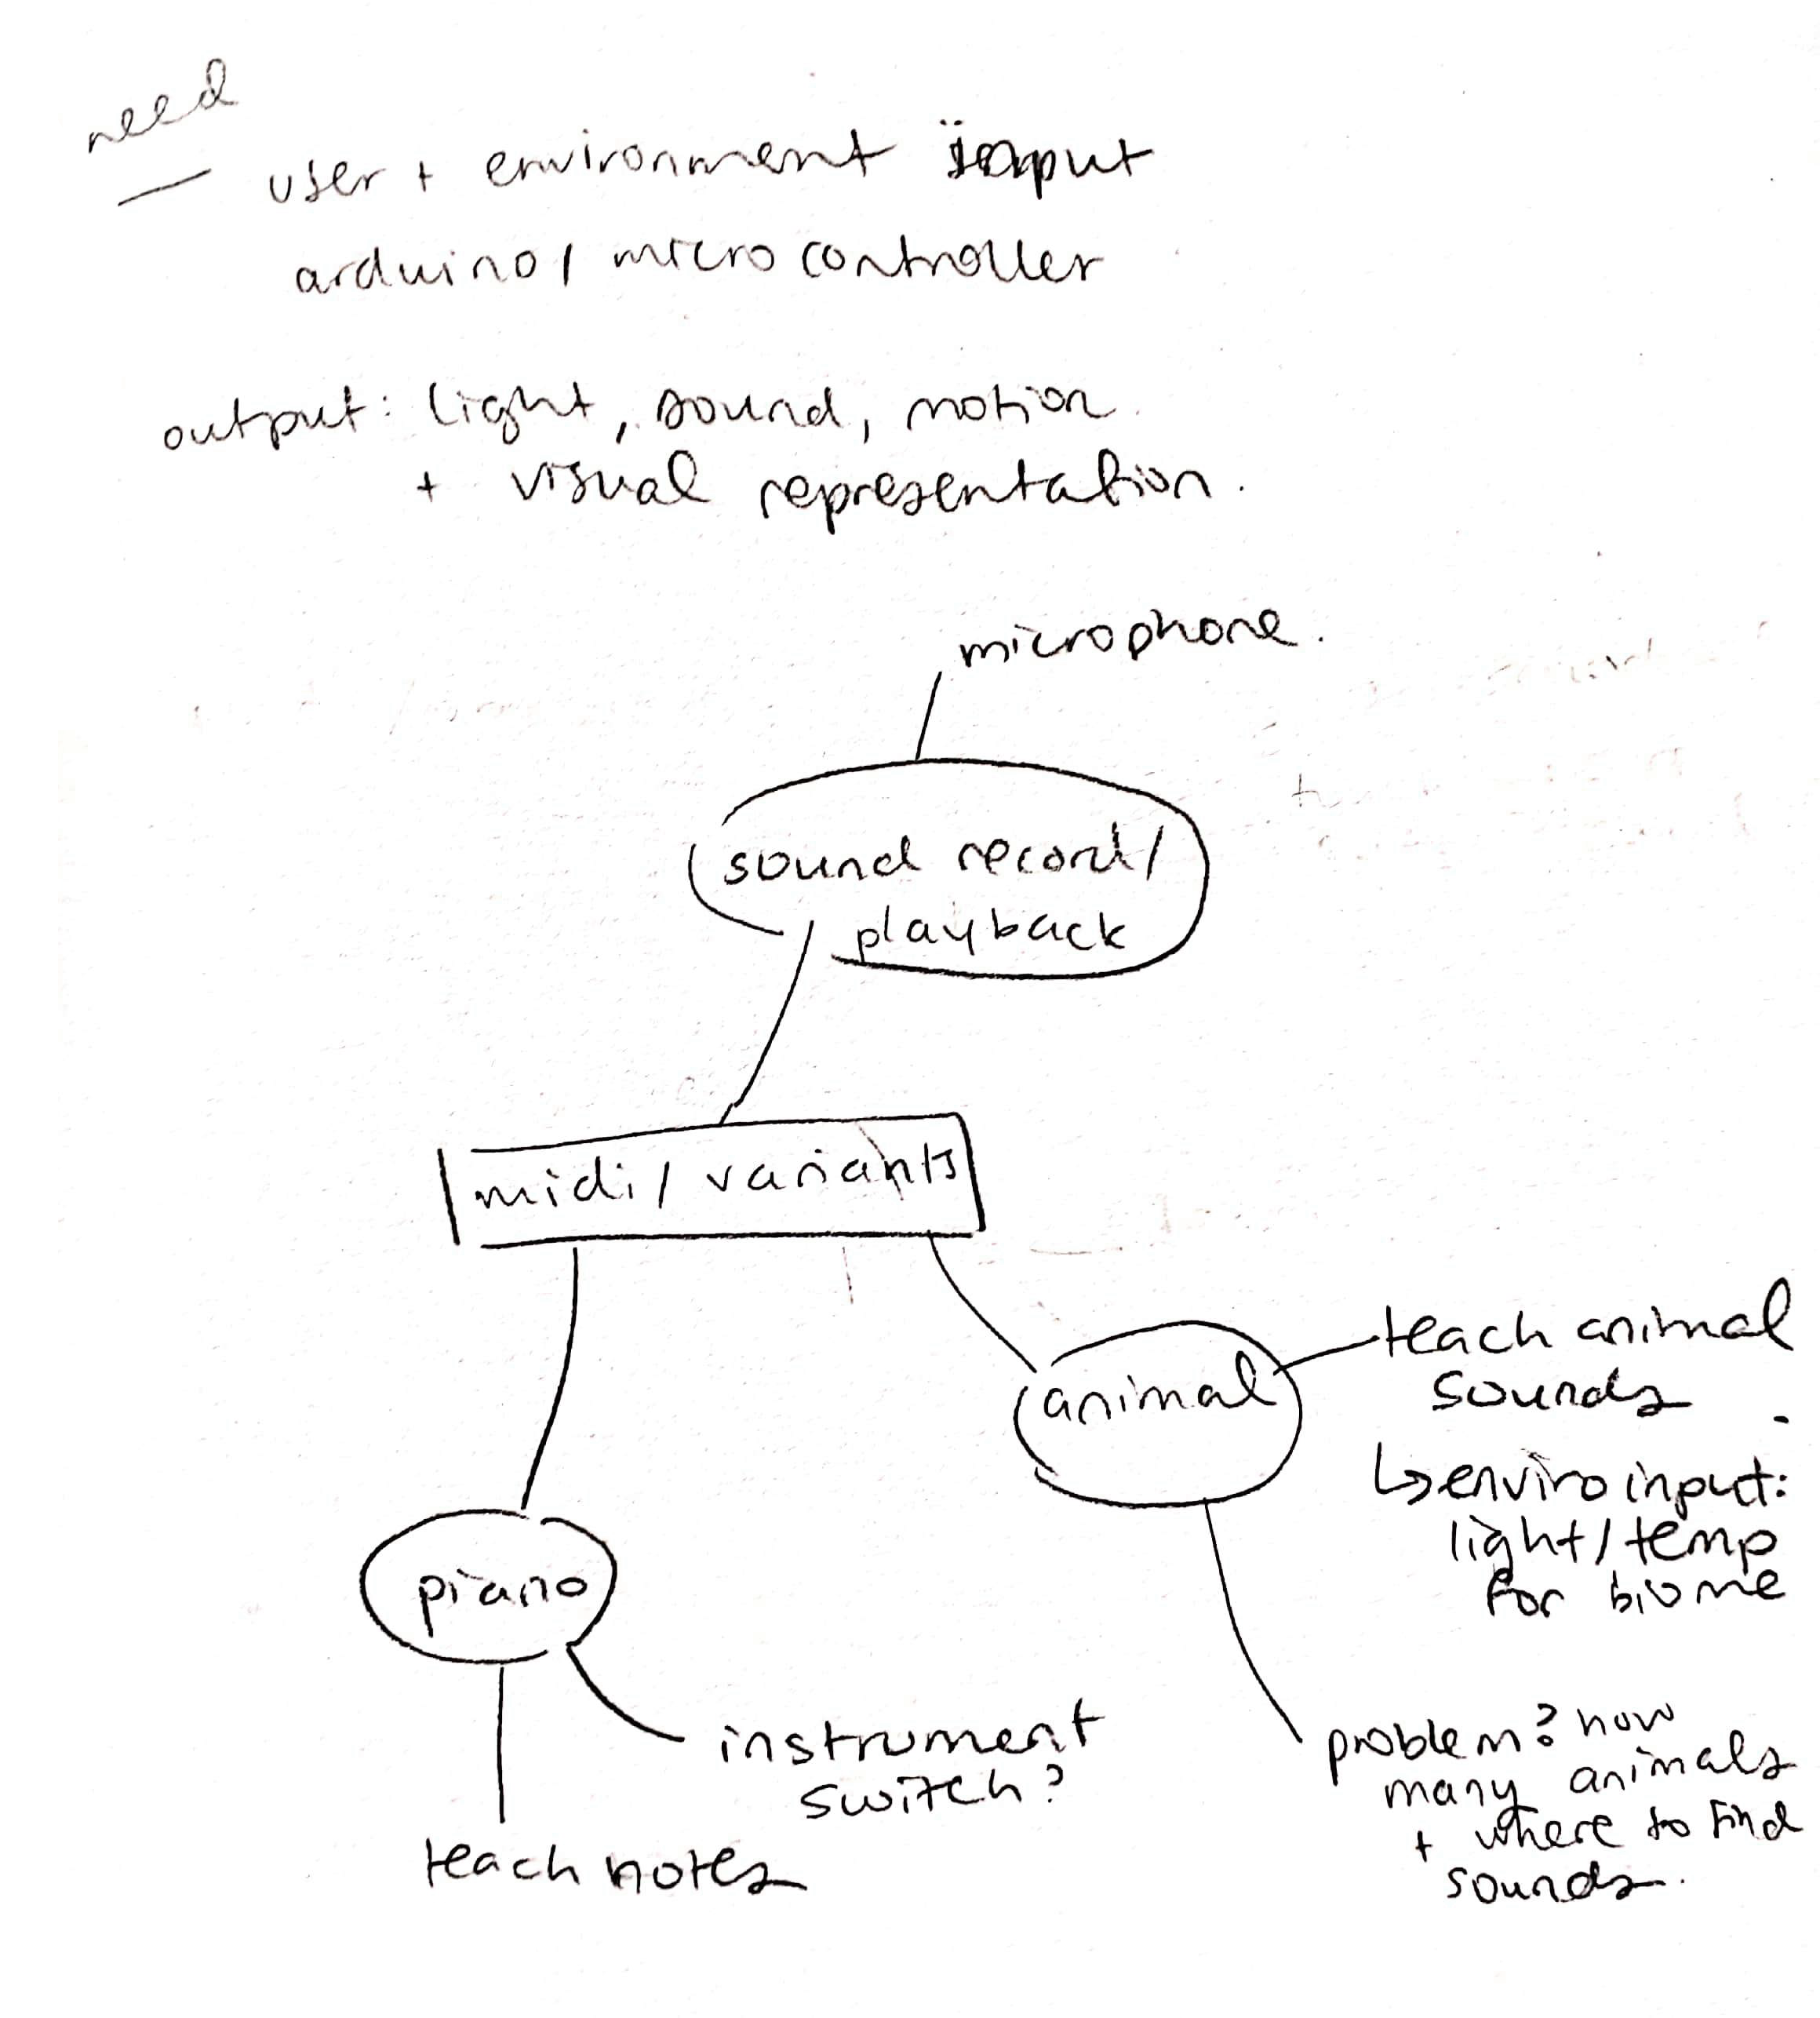 need
user + environment input
arduino / microcontroller
output: light, sound, motion.
+ visual representation.
microphone.
sound record/
playback
midi / variants
animal
teach animal
sounds
↳ enviro input:
light / temp
for biome
piano
instrument
switch?
teach notes
problem? how
many animals
+ where to find
sounds.